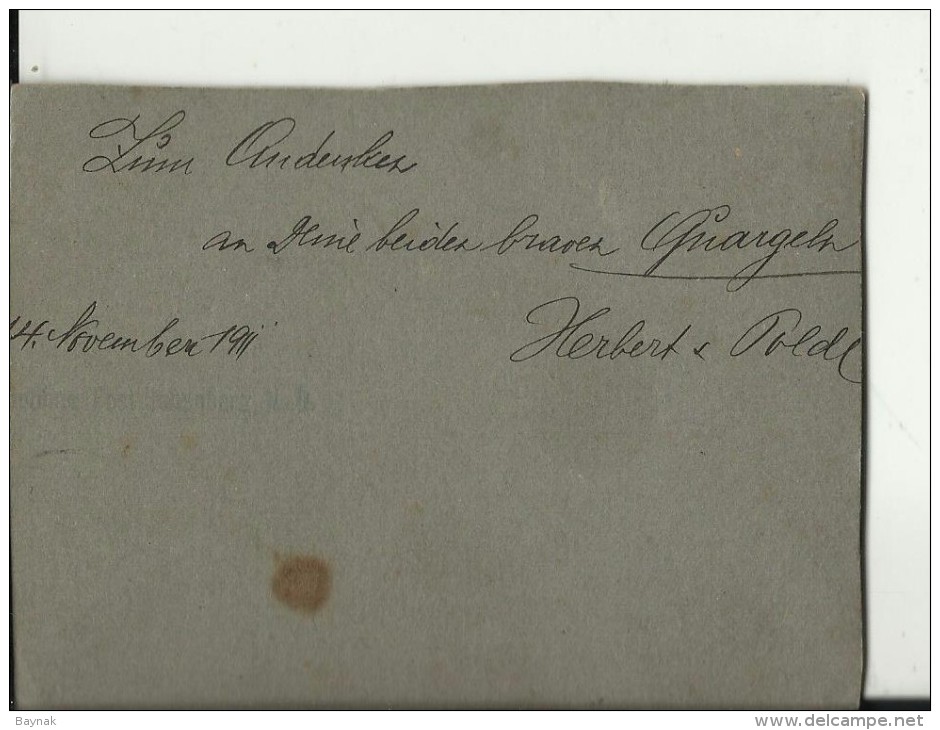 Zum Andenken
an Deine beiden braven Quargeln
14. November 1911
Herbert & Poldl
Baynak
www.delcampe.net